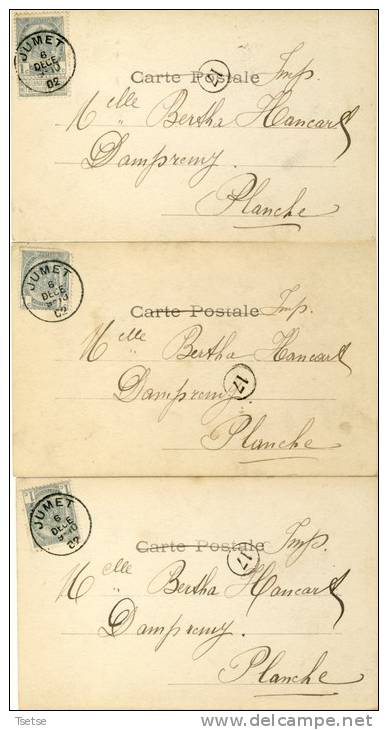 JUMET
6
DECE
9-10
02
Carte Postale
17
Imp.
Melle Bertha Hancart
Dampremy.
Planche
1
JUMET
6
DECE
9-10
02
Carte Postale
Imp.
Melle Bertha Hancart
17
Dampremy.
Planche
1
JUMET
6
DECE
9-10
02
Carte Postale
17
Imp.
Melle Bertha Hancart
Dampremy.
Planche
Tsetse
delcampe.net